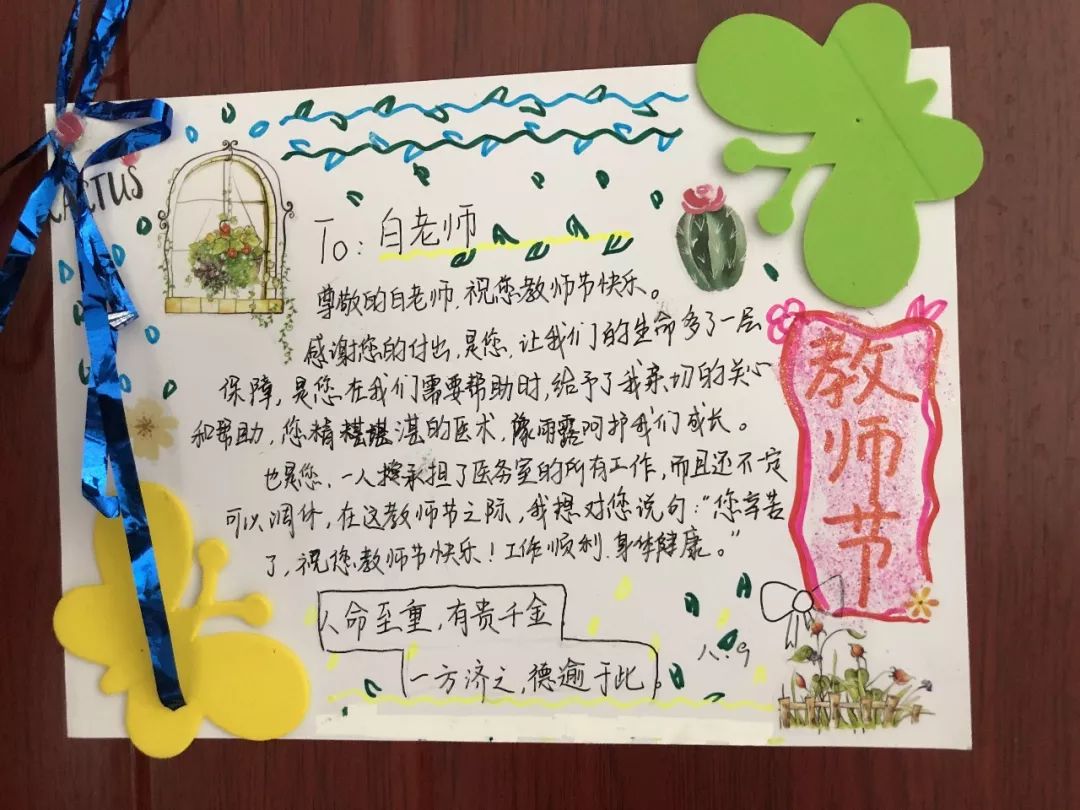 CACTUS
To: 白老师
尊敬的白老师,祝您教师节快乐。
感谢您的付出,是您,让我们的生命多了一层
保障,是您在我们需要帮助时,给予了我亲切的关心
和帮助,您精湛的医术,像雨露呵护我们成长。
也是您,一人承担了医务室的所有工作,而且还不一定
可以调休,在这教师节之际,我想对您说句:“您辛苦
了,祝您教师节快乐!工作顺利,身体健康。”
人命至重,有贵千金
一方济之,德逾于此。
教师节